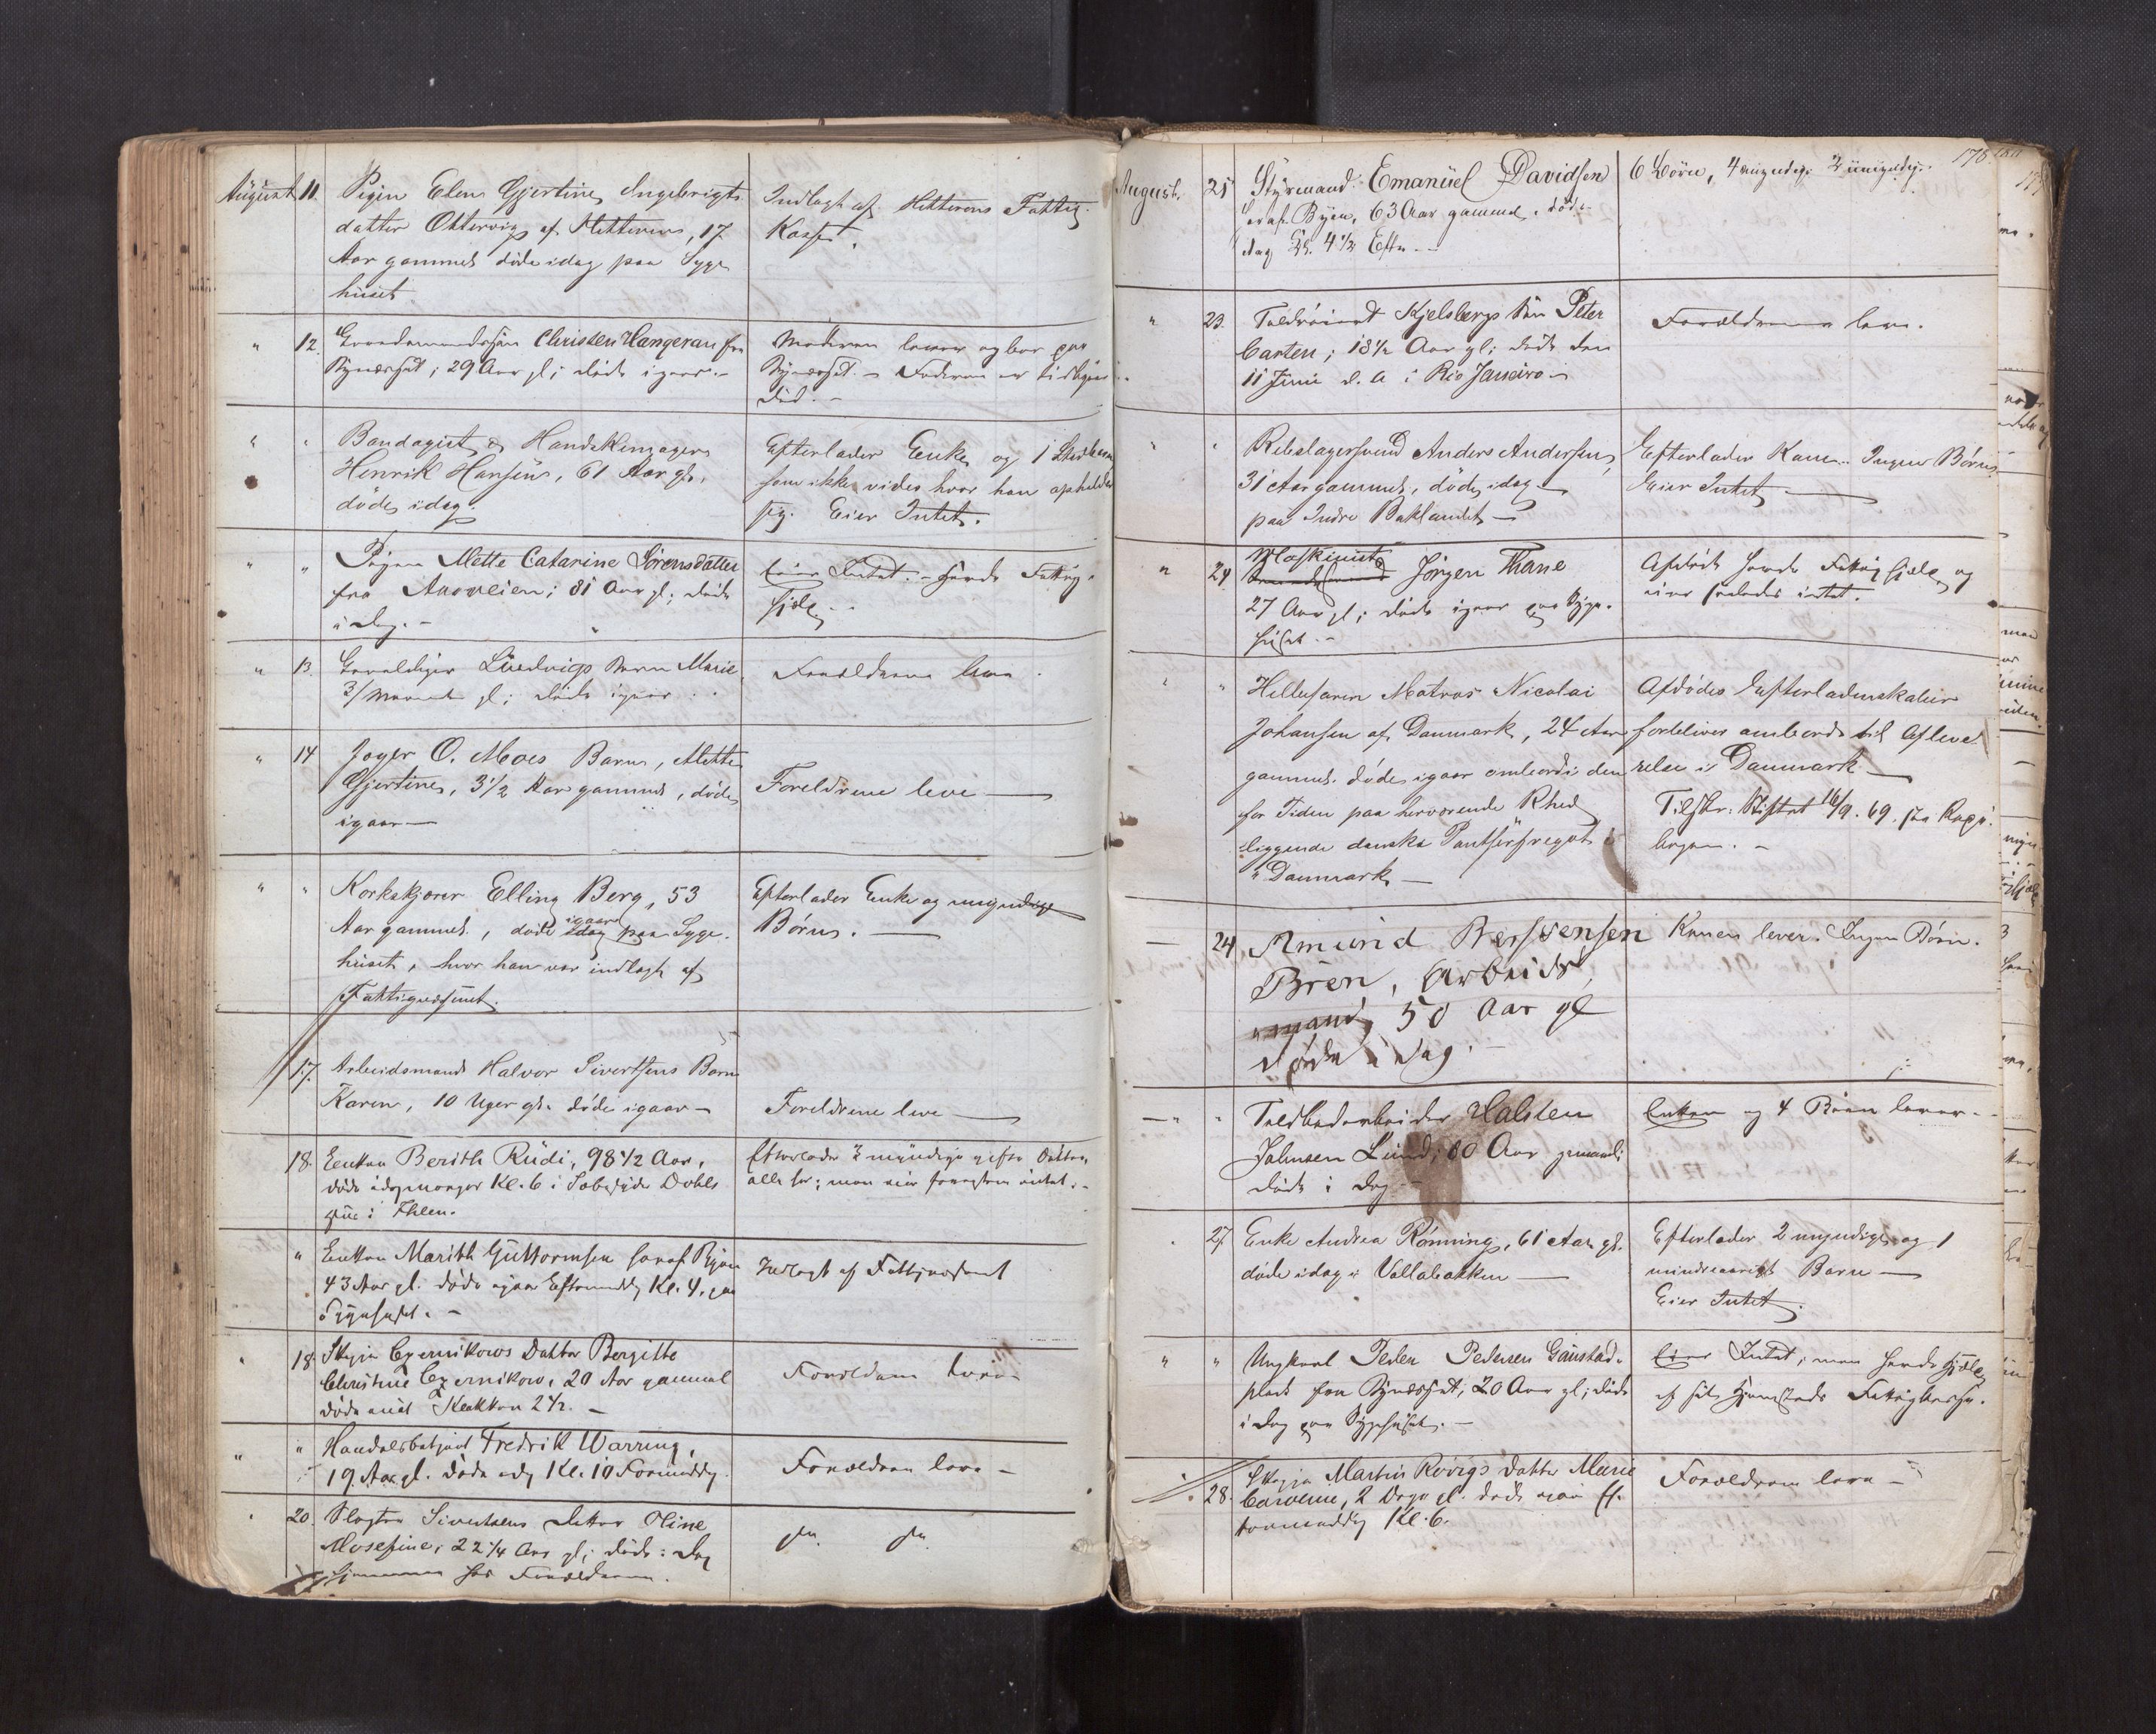 August 11. Pigen Elen Gjertine Ingebrigts
datter Ottervig af Hitteren, 17
Aar gammel døde idag paa Syge
huset
Indlagt af Hitterens Fattig
Kasse.
" 12. Gaardmandssøn Christen Hangeran fra
Bynæsset; 29 Aar gl; døde igaar.-
Moderen lever og bor paa
Bynæsset. - Faderen er tidligere
død.-
" " Bandagist & Handskemager
Henrik Hansen, 61 Aar gl.
døde idag.
Efterlader Enke og 1
som ikke vides hvor han opholder
sig. Eier Intet.
" " Pigen Mette Catarine Sørensdatter
fra 81 Aar gl; døde
i Dag.-
Eier Intet. - havde Fattig-
hjælp.
" 13. Ludvigs Barn Marie
3/ Maaneder gl; døde igaar
Forældrene leve.
" 14 Jæger O. Moes Barn, Mette
Gjertine, 3 1/2 Aar gammel, døde
igaar —
Foreldrene leve —
" " Korkskjærer Elling Berg, 53
Aar gammel, døde igaar idag paa Syge-
huset, hvor han var indlagt af
Fattigvæsenet.
Efterlader Enke og myndige
Børn. —
17. Arbeidsmand Halvor Sivertsens Barn
Karen, 10 Uger gl. døde igaar —
Foreldrene leve —
18. Enken Berith Rudi, 98 1/2 Aar,
døde idagmorges Kl. 6 i Dahls
i Ihlen.
Efterlader 3 myndige gifte Døttre,
alle her; men eier forresten intet.-
" Enken Marith Guttormsen her af Byen
43 Aar gl. døde igaar Eftermiddag Kl. 4, paa
Sygehuset. -
Indlagt af Fattigvæsenet
18. Skipper Czernikows Datter Bergitte
Christine Czernikow, 20 Aar gammel
døde Klokken 2 1/2. -
Forældrene leve
" " Handelsbetjent Fredrik Warring,
19 Aar gl. døde idag Kl. 10 Formiddag.
Forældrene leve -
20. Slagter Sivertsens Datter Oline
Mosefine; 22 1/4 Aar gl; døde i Dag
hjemme hos Forældrene.
178
August. 21 Styrmand Emanuel Davidsen
her af Byen, 63 Aar gammel, døde i-
dag Kl. 4 1/2 Efm.-
6 Børn, 4 myndige 2 umyndige.
" 23. Toldroerer Kjelsbergs Søn Peter
Carsten; 18 1/2 Aar gl; døde den
11 Juni d. A. i Rio Janeiro -
Forældrene leve.
" " Rebslagersvend Anders Andersen,
31 Aar gammel, døde idag
paa Indre Baklandet —
Efterlader Kone. Ingen Børn
Eier Intet —
" 24 Maskinist
Jørgen Thane
27 Aar gl; døde igaar paa Syge-
huset.-
Afdøde havde Fattighjælp og
eier saaledes intet.
" " Matros Nicolai
Johansen af Danmark, 24 Aar
gammel. døde igaar ombord i den
for Tiden paa herværende Rhed
liggende danske Pantserfregat
"Danmark —
Afdødes Efterladenskaber
forbliver ombord til Afleve-
relse i Danmark —
Tilskr. Skiftet 16/9. 69, see Kopi-
bogen. -
— 24 Amund Berssvensen
Bren, Arbeids
mand, 50 Aar gl
døde i Dag.-
Konen lever. Ingen Børn.
— " " Toldbodarbeider Halsten
Johnsen Lund; 60 Aar gammel;
døde i Dag -
Enken og 4 Børn lever.-
27 Enke Andrea Rønning, 61 Aar gl.
døde idag i Vollabakken —
Efterlader 2 myndige og 1
mindreaarigt Barn —
Eier Intet.
" " Ungkarl Peder Pedersen Gaustad-
plads fra Bynæsset; 20 Aar gl; døde
i Dag paa Sygehuset. -
Eier Intet; men havde Hjælp
af sit Hjemsteds Fattigkasse.
28. Skipper Martin Rovigs Datter Marie
Caroline, 2 Dage gl. døde igaar Ef-
termiddag Kl. 6.
Forældrene leve -